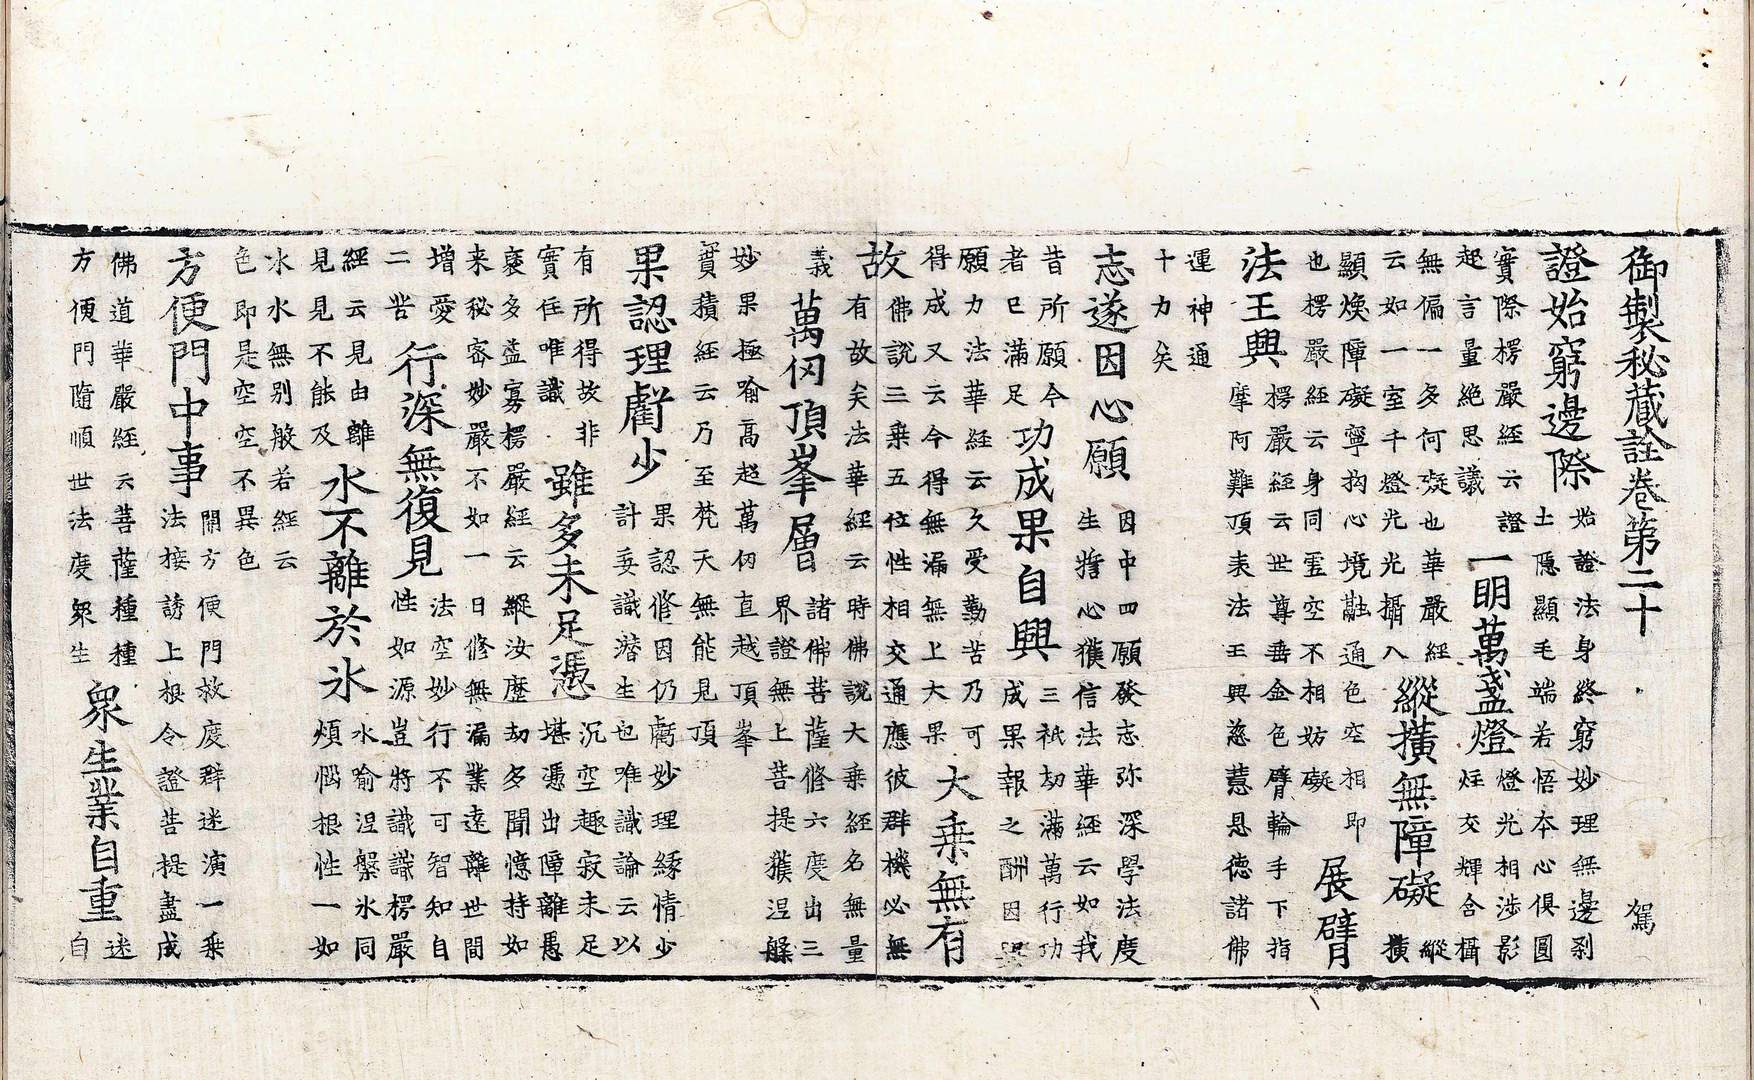 御製秘藏詮卷第二十 駕
證始窮邊際
始證法身終窮妙理無邊刹
土隱顯毛端若悟本心俱圓
實際楞嚴經云證
趣言量絶思議
一明萬盞燈
燈光相涉影
炷交輝含攝
無偏一多何礙也華嚴經
云如一室千燈光光攝入
縱橫無障礙
縱
橫
顯煥障礙寧拘心境融通色空相即
也楞嚴經云身同虛空不相妨礙
展臂
法王興
楞嚴經云世尊垂金色臂輪手下指
摩阿難頂表法王興慈慧恩德諸佛
運神通
十力矣
志遂因心願
因中四願發志弥深學法度
生擔心獲信法華經云如我
昔所願今
者已滿足
功成果自興
三祇劫滿萬行功
成果報之酬因與
願力法華經云久受勤苦乃可
得成又云今得無漏無上大果
大乘無有
故
佛說三乘五位性相交通應彼群機必無
有故矣法華經云時佛說大乘經名無量
義
萬仞頂峯層
諸佛菩薩修六度出三
界證無上菩提獲涅槃
妙果極喻高超萬仞直越頂峯
寳積經云乃至梵天無能見頂
果認理虧少
果認修因仍虧妙理緣情少
計妄識潛生也唯識論云以
有所得故非
實住唯識
雖多未足憑
沉空趣寂未足
堪憑出障離愚
褒多益寡楞嚴經云縱汝歷劫多聞憶持如
来秘密妙嚴不如一日修無漏業遠離世間
增愛
二苦
行深無復見
法空妙行不可智知自
性如源豈將識識楞嚴
經云見由離
見見不能及
水不離於氷
水喻涅槃氷同
煩惱根性一如
水水無別般若經云
色即是空空不異色
方便門中事
開方便門救度群迷演一乘
法接誘上根令證菩提盡成
佛道華嚴經云菩薩種種
方便門隨順世法度眾生
眾生業自重
迷
自